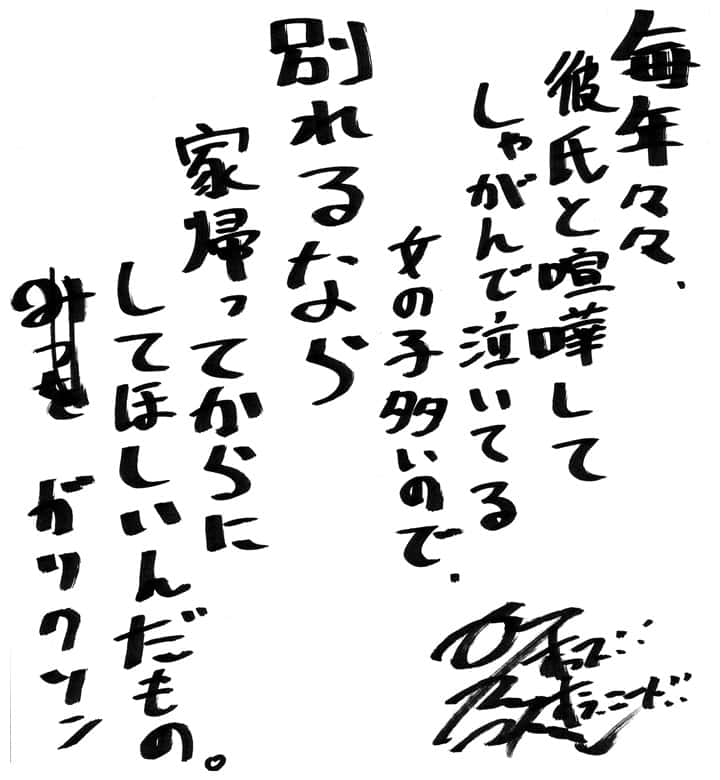 毎年々々、
彼氏と喧嘩して
しゃがんで泣いてる
女の子多いので、
別れるなら
家帰ってからに
してほしいんだもの。
みつを ガリクソン